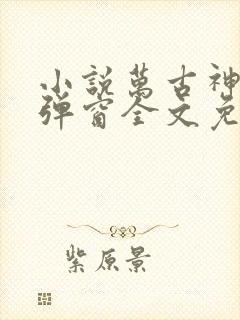 小説萬古神
彈窗全文免
紫原景